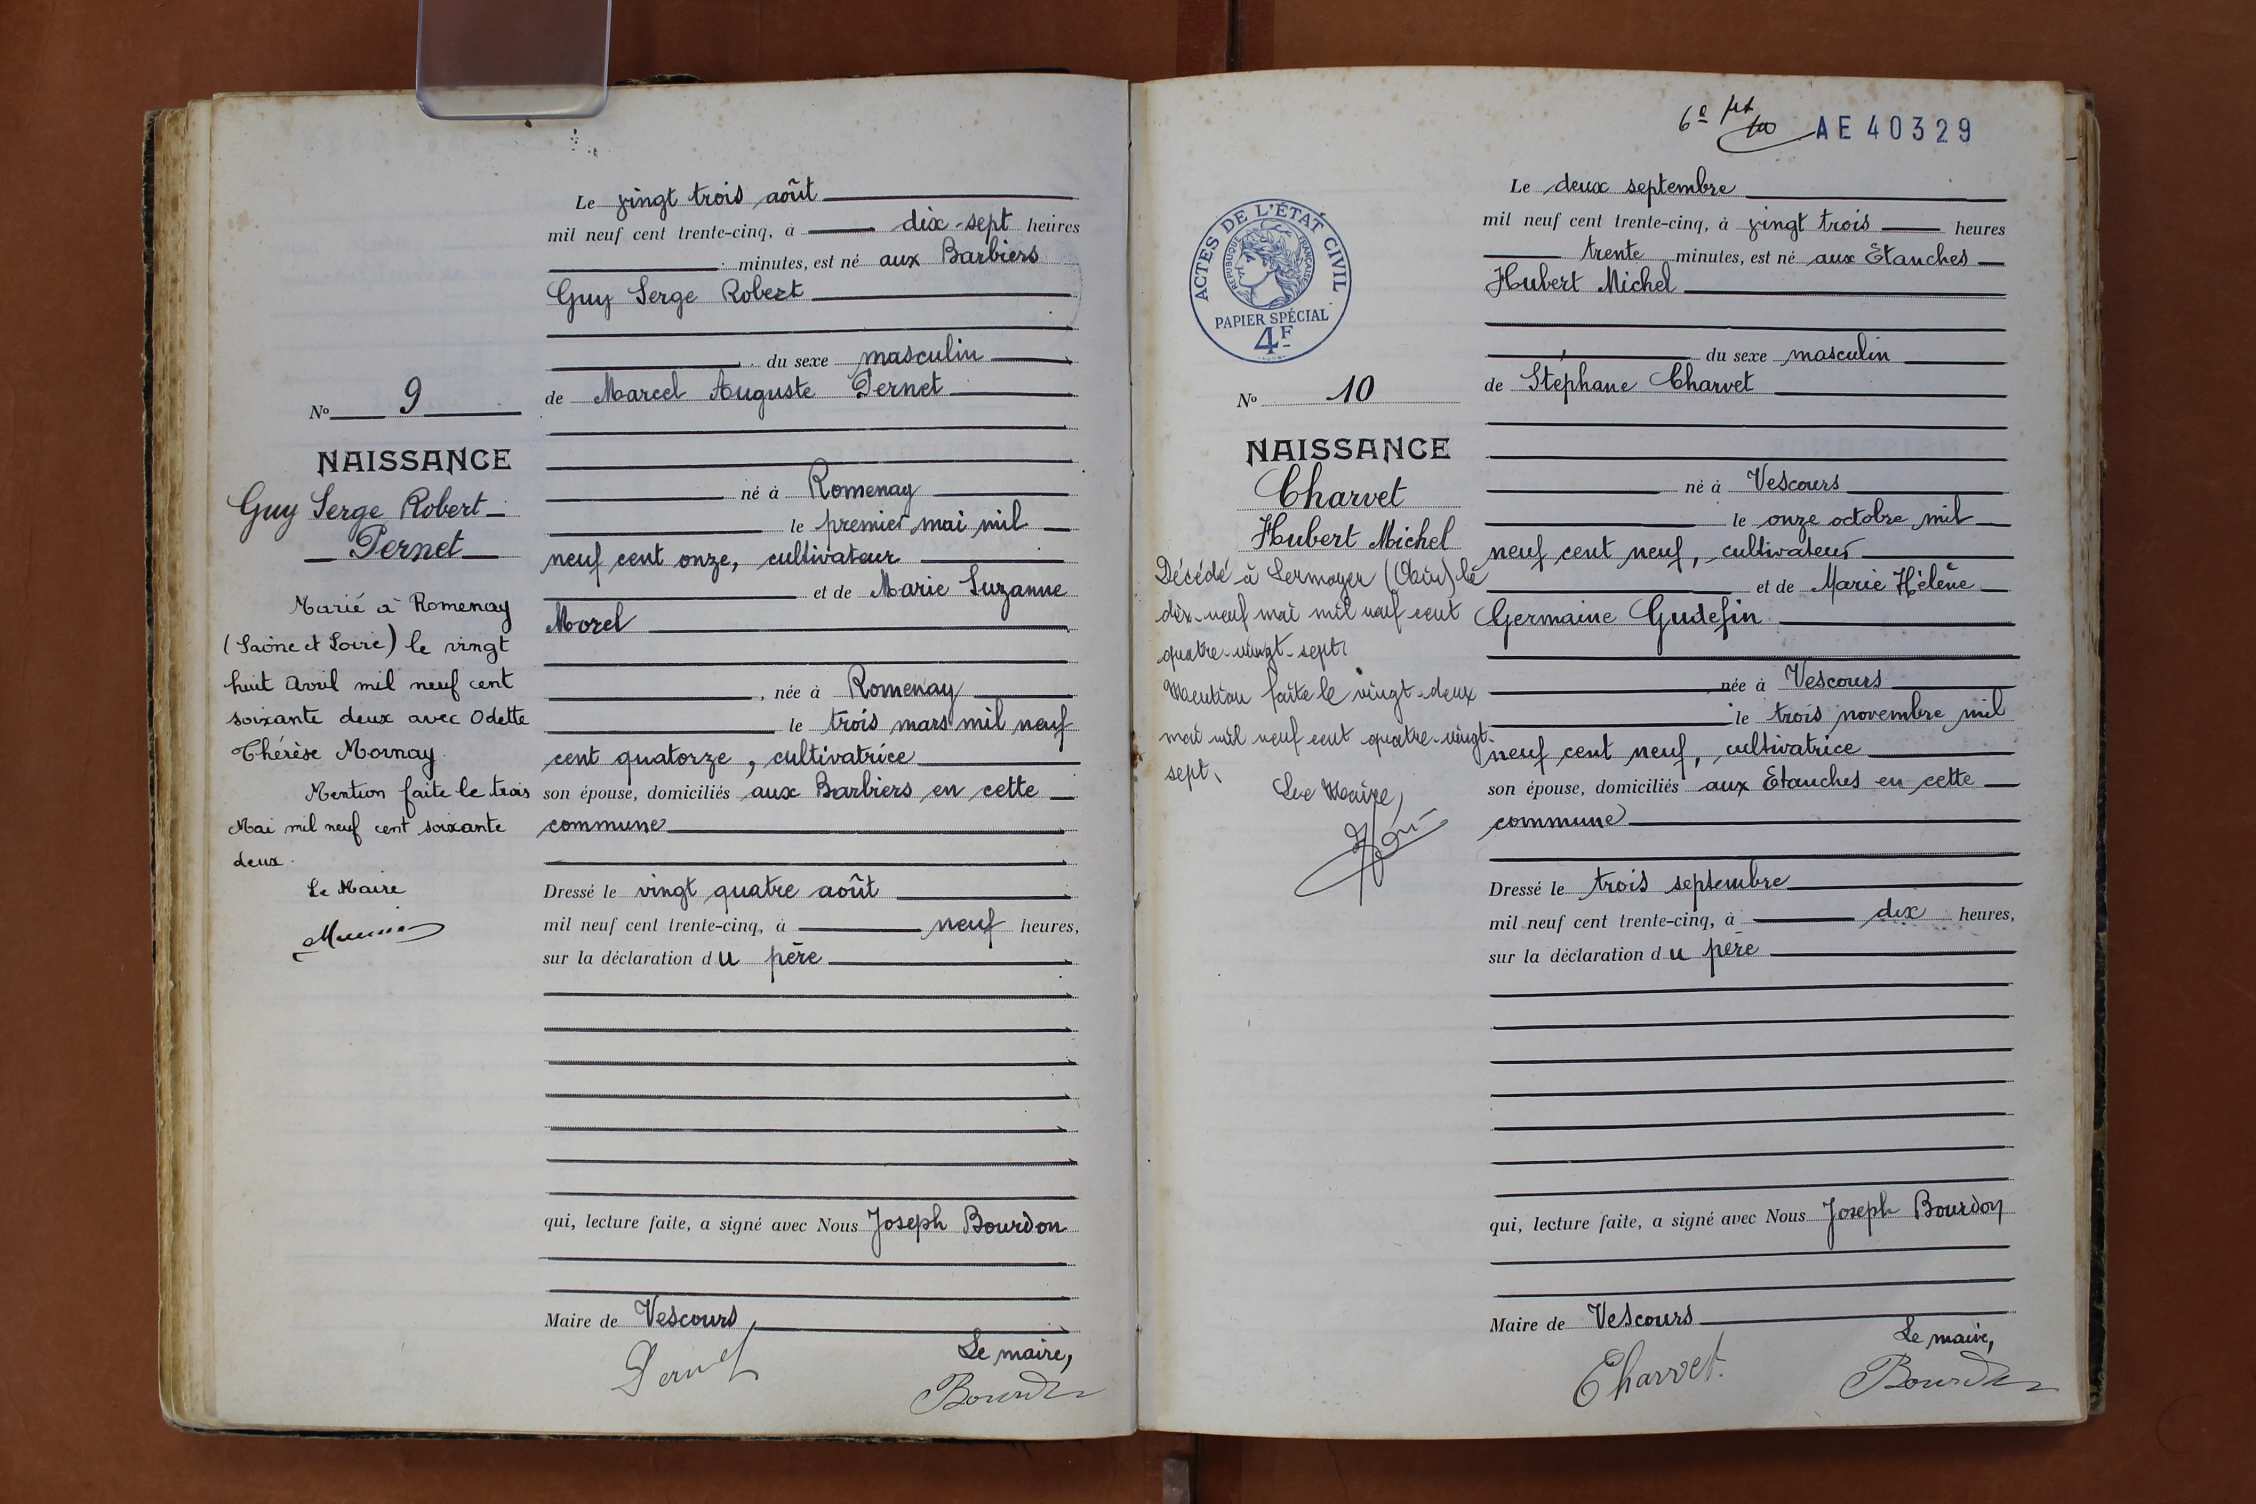 Le vingt trois août
mil neuf cent trente-cinq, à dix-sept heures
minutes, est né aux Barbiers
Guy Serge Robert
du sexe masculin
de Marcel Auguste Pernet
né à Romenay
le premier mai mil
neuf cent onze, cultivateur
et de Marie Suzanne
Morel
, née à Romenay
le trois mars mil neuf
cent quatorze, cultivatrice
son épouse, domiciliés aux Barbiers en cette
commune
Dressé le vingt quatre août
mil neuf cent trente-cinq, à neuf heures,
sur la déclaration du père
qui, lecture faite, a signé avec Nous Joseph Bourdon
Maire de Vescours
Le maire,
Pernet
Bourdon
No 9
NAISSANCE
Guy Serge Robert
Pernet
Marié à Romenay
(Saône et Loire) le vingt
huit Avril mil neuf cent
soixante deux avec Odette
Thérèse Mornay.
Mention faite le trois
Mai mil neuf cent soixante
deux.
Le Maire
6e
AE 40329
ACTES DE L'ÉTAT CIVIL
RÉPUBLIQUE FRANÇAISE
PAPIER SPÉCIAL
4F
Le deux septembre
mil neuf cent trente-cinq, à vingt trois heures
trente minutes, est né aux Etanches
Hubert Michel
du sexe masculin
de Stéphane Charvet
né à Vescours
le onze octobre mil
neuf cent neuf, cultivateur
et de Marie Hélène
Germaine Gudefin
née à Vescours
le trois novembre mil
neuf cent neuf, cultivatrice
son épouse, domiciliés aux Etanches en cette
commune
Dressé le trois septembre
mil neuf cent trente-cinq, à dix heures,
sur la déclaration du père
qui, lecture faite, a signé avec Nous Joseph Bourdon
Maire de Vescours
Le maire,
Charvet.
Bourdon
No 10
NAISSANCE
Charvet
Hubert Michel
Décédé à Sermoyer (Ain) le
dix-neuf mai mil neuf cent
quatre-vingt-sept.
Mention faite le vingt-deux
mai mil neuf cent quatre-vingt-
sept.
Le Maire,